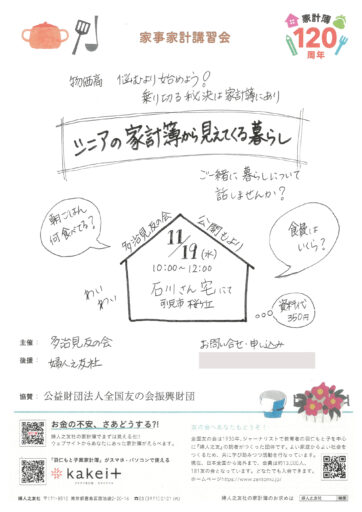 家事家計講習会
家計簿
120
周年
物価高 悩むより始めよう!
乗り切る秘決は家計簿にあり
シニアの家計簿から見えてくる暮らし
ご一緒に暮らしについて
話しませんか?
朝ごはん
何食べてる?
多治見友の会
公開もより
11/19(水)
10:00〜12:00
石川さん宅にて
可児市桜ケ丘
食費は
いくら?
わい
わい
資料代
350円
主催: 多治見友の会
お問い合せ・申し込み
後援: 婦人之友社
協賛: 公益財団法人全国友の会振興財団
お金の不安、さあどうする?!
婦人之友社の家計簿でまずは見える化!
ウェブサイトからあなたにあった家計簿がえらべます。
「羽仁もと子案家計簿」がスマホ・パソコンで使える
kakei+
友の会へあなたもどうぞ!
全国友の会は1930年、ジャーナリストで教育者の羽仁もと子を中心
に『婦人之友』の読者がつくった団体です。よい家庭からよい社会を
つくるため、共に学び励みつつ活動を行なっています。
現在、日本全国から海外まで、会員は約13,000人、
181友の会となっています。どなたでも入会できます。
ホームページhttps://www.zentomo.jp/
婦人之友社 〒171-8510 東京都豊島区西池袋2-20-16
婦人之友社 家計簿のお求めは